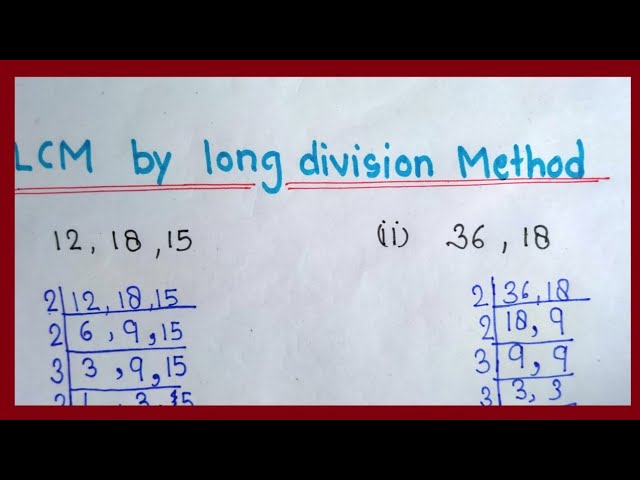 LCM by long division Method
12, 18, 15
(ii) 36, 18
2 12, 18, 15
2 6, 9, 15
3 3, 9, 15
1, 3,
2 36, 18
2 18, 9
3 9, 9
3 3, 3